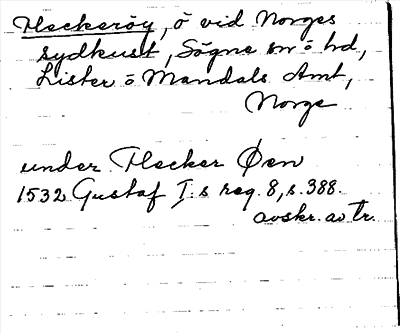 Fleckerøy, ö vid Norges
sydkust, Sögne sn o hd,
Lister o Mandals Amt,
Norge
under Flecker Øen
1532 Gustaf I:s reg. 8, s. 388.
avskr. av tr.